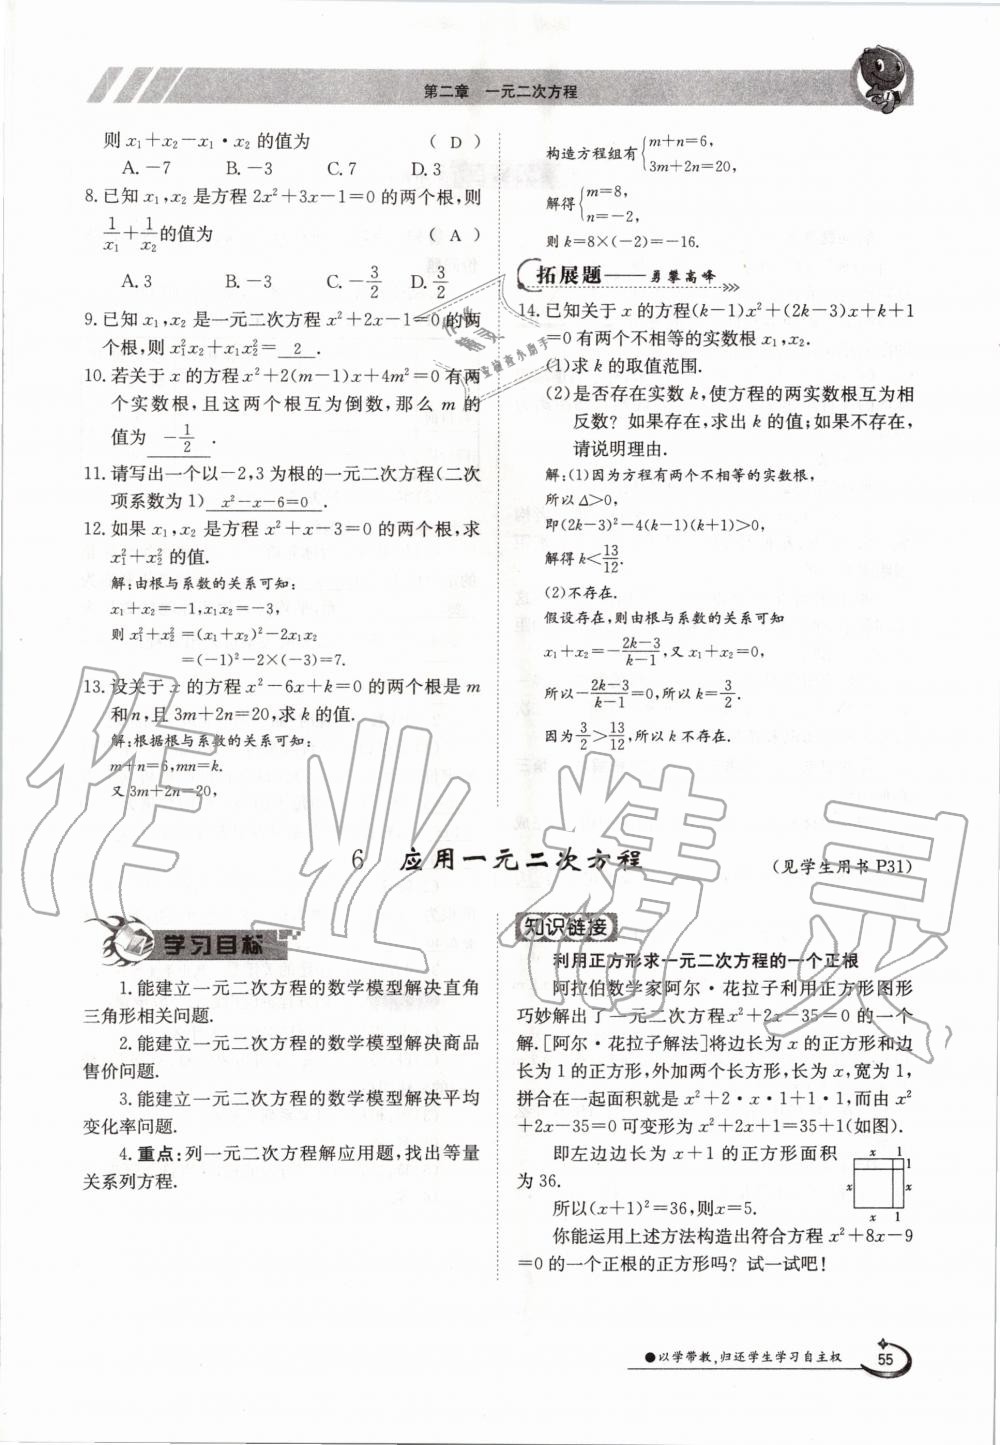 第二章 一元二次方程
则 x₁+x₂−x₁·x₂ 的值为 ( D )
A.−7 B.−3 C.7 D.3
8.已知 x₁,x₂ 是方程 2x²+3x−1=0 的两个根,则
1/x₁+1/x₂的值为 ( A )
A.3 B.−3 C.−3/2 D.3/2
9.已知 x₁,x₂ 是一元二次方程 x²+2x−1=0 的两
个根,则 x₁²x₂+x₁x₂²= 2 .
10.若关于 x 的方程 x²+2(m−1)x+4m²=0 有两
个实数根,且这两个根互为倒数,那么 m 的
值为 −1/2 .
11.请写出一个以−2,3 为根的一元二次方程(二次
项系数为 1) x²−x−6=0 .
12.如果 x₁,x₂ 是方程 x²+x−3=0 的两个根,求
x₁²+x₂² 的值.
解:由根与系数的关系可知:
x₁+x₂=−1,x₁x₂=−3,
则 x₁²+x₂²=(x₁+x₂)²−2x₁x₂
=(−1)²−2×(−3)=7.
13.设关于 x 的方程 x²−6x+k=0 的两个根是 m
和n,且 3m+2n=20,求 k 的值.
解:根据根与系数的关系可知:
m+n=6,mn=k.
又 3m+2n=20,
构造方程组有{m+n=6,
3m+2n=20,
解得{m=8,
n=−2,
则 k=8×(−2)=−16.
拓展题——勇攀高峰
14.已知关于 x 的方程(k−1)x²+(2k−3)x+k+1
=0 有两个不相等的实数根 x₁,x₂.
(1)求 k 的取值范围.
(2)是否存在实数 k,使方程的两实数根互为相
反数? 如果存在,求出 k 的值;如果不存在,
请说明理由.
解:(1)因为方程有两个不相等的实数根,
所以 Δ>0,
即(2k−3)²−4(k−1)(k+1)>0,
解得 k<13/12.
(2)不存在.
假设存在,则由根与系数的关系可知
x₁+x₂=−(2k−3)/(k−1),又 x₁+x₂=0,
所以−(2k−3)/(k−1)=0,所以 k=3/2.
因为3/2>13/12,所以 k 不存在.
6 应用一元二次方程
(见学生用书 P31)
学习目标
1.能建立一元二次方程的数学模型解决直角
三角形相关问题.
2.能建立一元二次方程的数学模型解决商品
售价问题.
3.能建立一元二次方程的数学模型解决平均
变化率问题.
4.重点:列一元二次方程解应用题,找出等量
关系列方程.
知识链接
利用正方形求一元二次方程的一个正根
阿拉伯数学家阿尔·花拉子利用正方形图形
巧妙解出了一元二次方程x²+2x−35=0 的一个
解.[阿尔·花拉子解法]将边长为 x 的正方形和边
长为 1 的正方形,外加两个长方形,长为 x,宽为 1,
拼合在一起面积就是 x²+2·x·1+1·1,而由 x²
+2x−35=0 可变形为 x²+2x+1=35+1(如图).
即左边边长为 x+1 的正方形面积
为 36.
所以(x+1)²=36,则x=5.
你能运用上述方法构造出符合方程 x²+8x−9
=0 的一个正根的正方形吗? 试一试吧!
x 1
1
x x
x 1
●以学带教,归还学生学习自主权
55
作业精灵